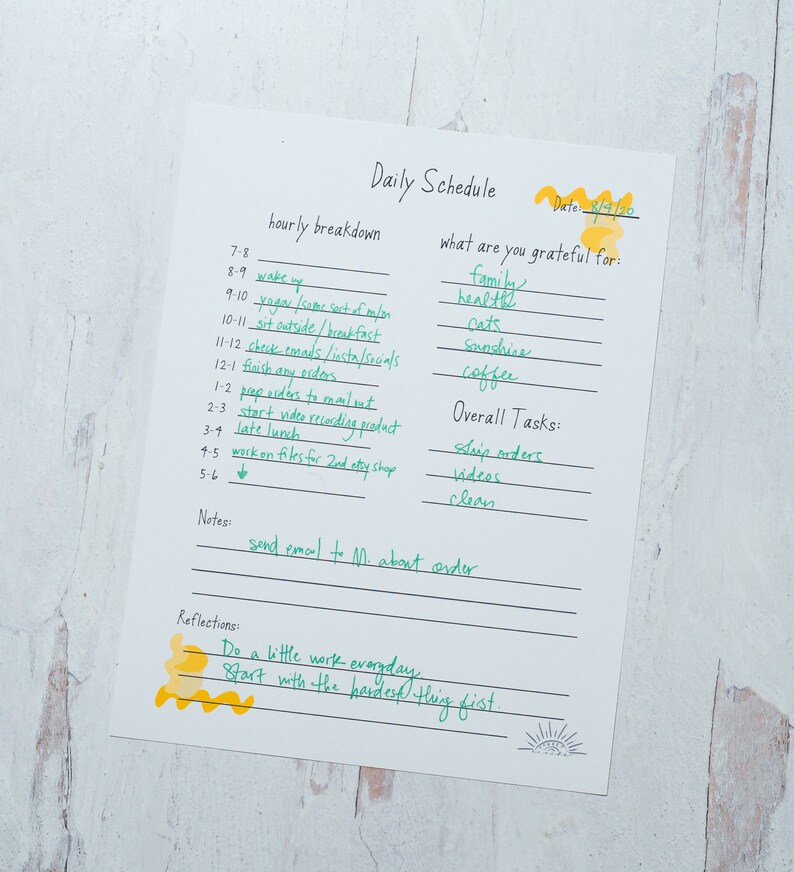 Daily Schedule
Date: 8/4/20
hourly breakdown
7-8
8-9 wake up
9-10 yoga/some sort of m/m
10-11 sit outside/breakfast
11-12 check emails/insta/socials
12-1 finish any orders
1-2 prep orders to mail out
2-3 start video recording product
3-4 late lunch
4-5 work on files for 2nd etsy shop
5-6 ↓
what are you grateful for:
family
health
cats
sunshine
coffee
Overall Tasks:
ship orders
videos
clean
Notes:
send email to M. about order
Reflections:
Do a little work everyday.
Start with the hardest thing first.